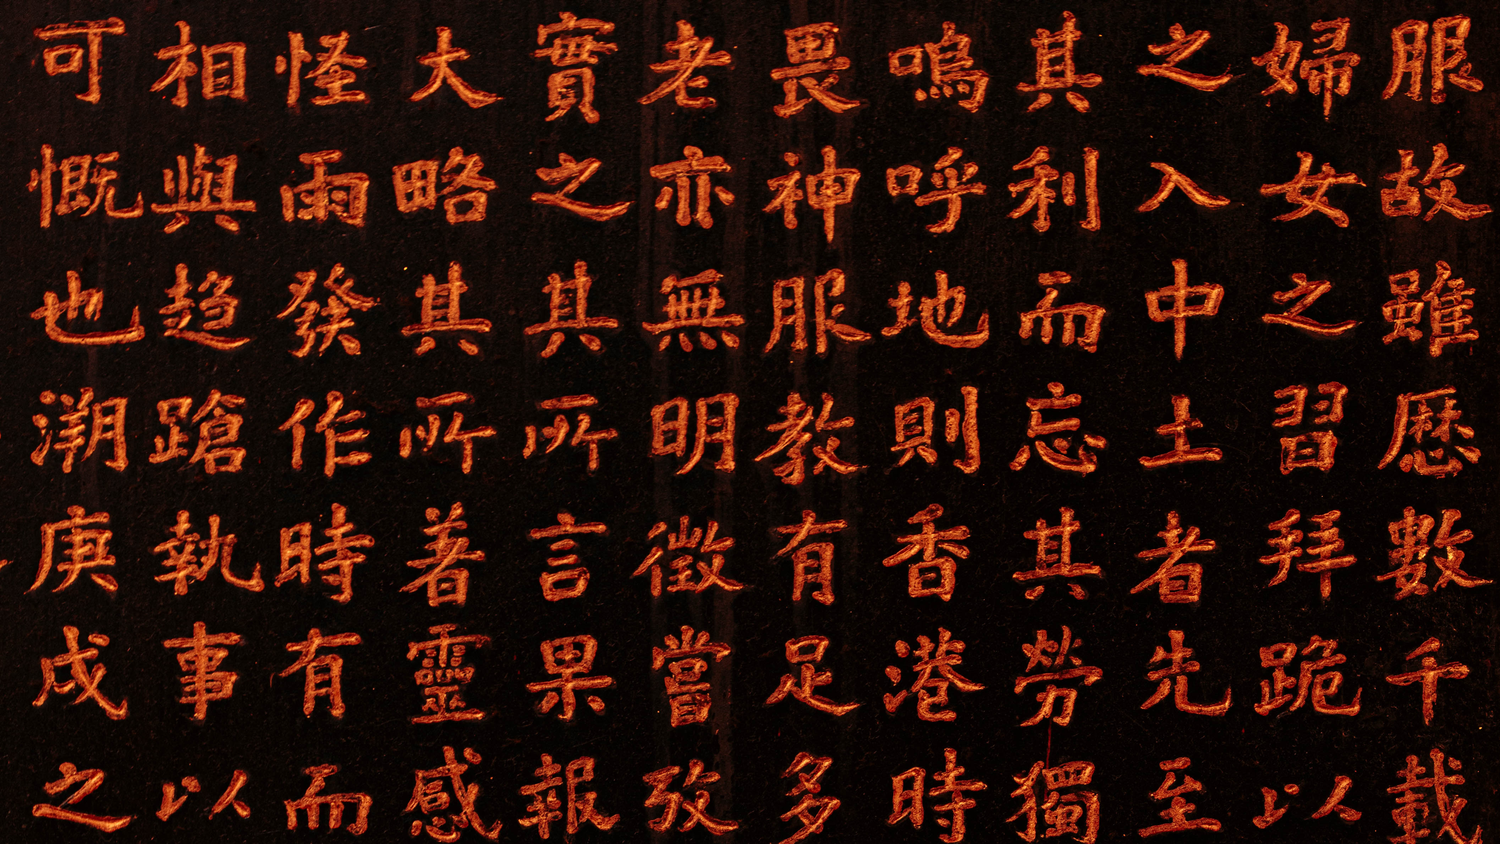 服故雖歷數千載
婦女之習拜跪以
之入中土者先至
其利而忘其勞獨
嗚呼地則香港時
畏神服教有足多
老亦無明徵嘗攷
實之其所言果報
大略其所著靈感
怪雨發作時有而
相與趨蹌執事以
可慨也溯庚戌之